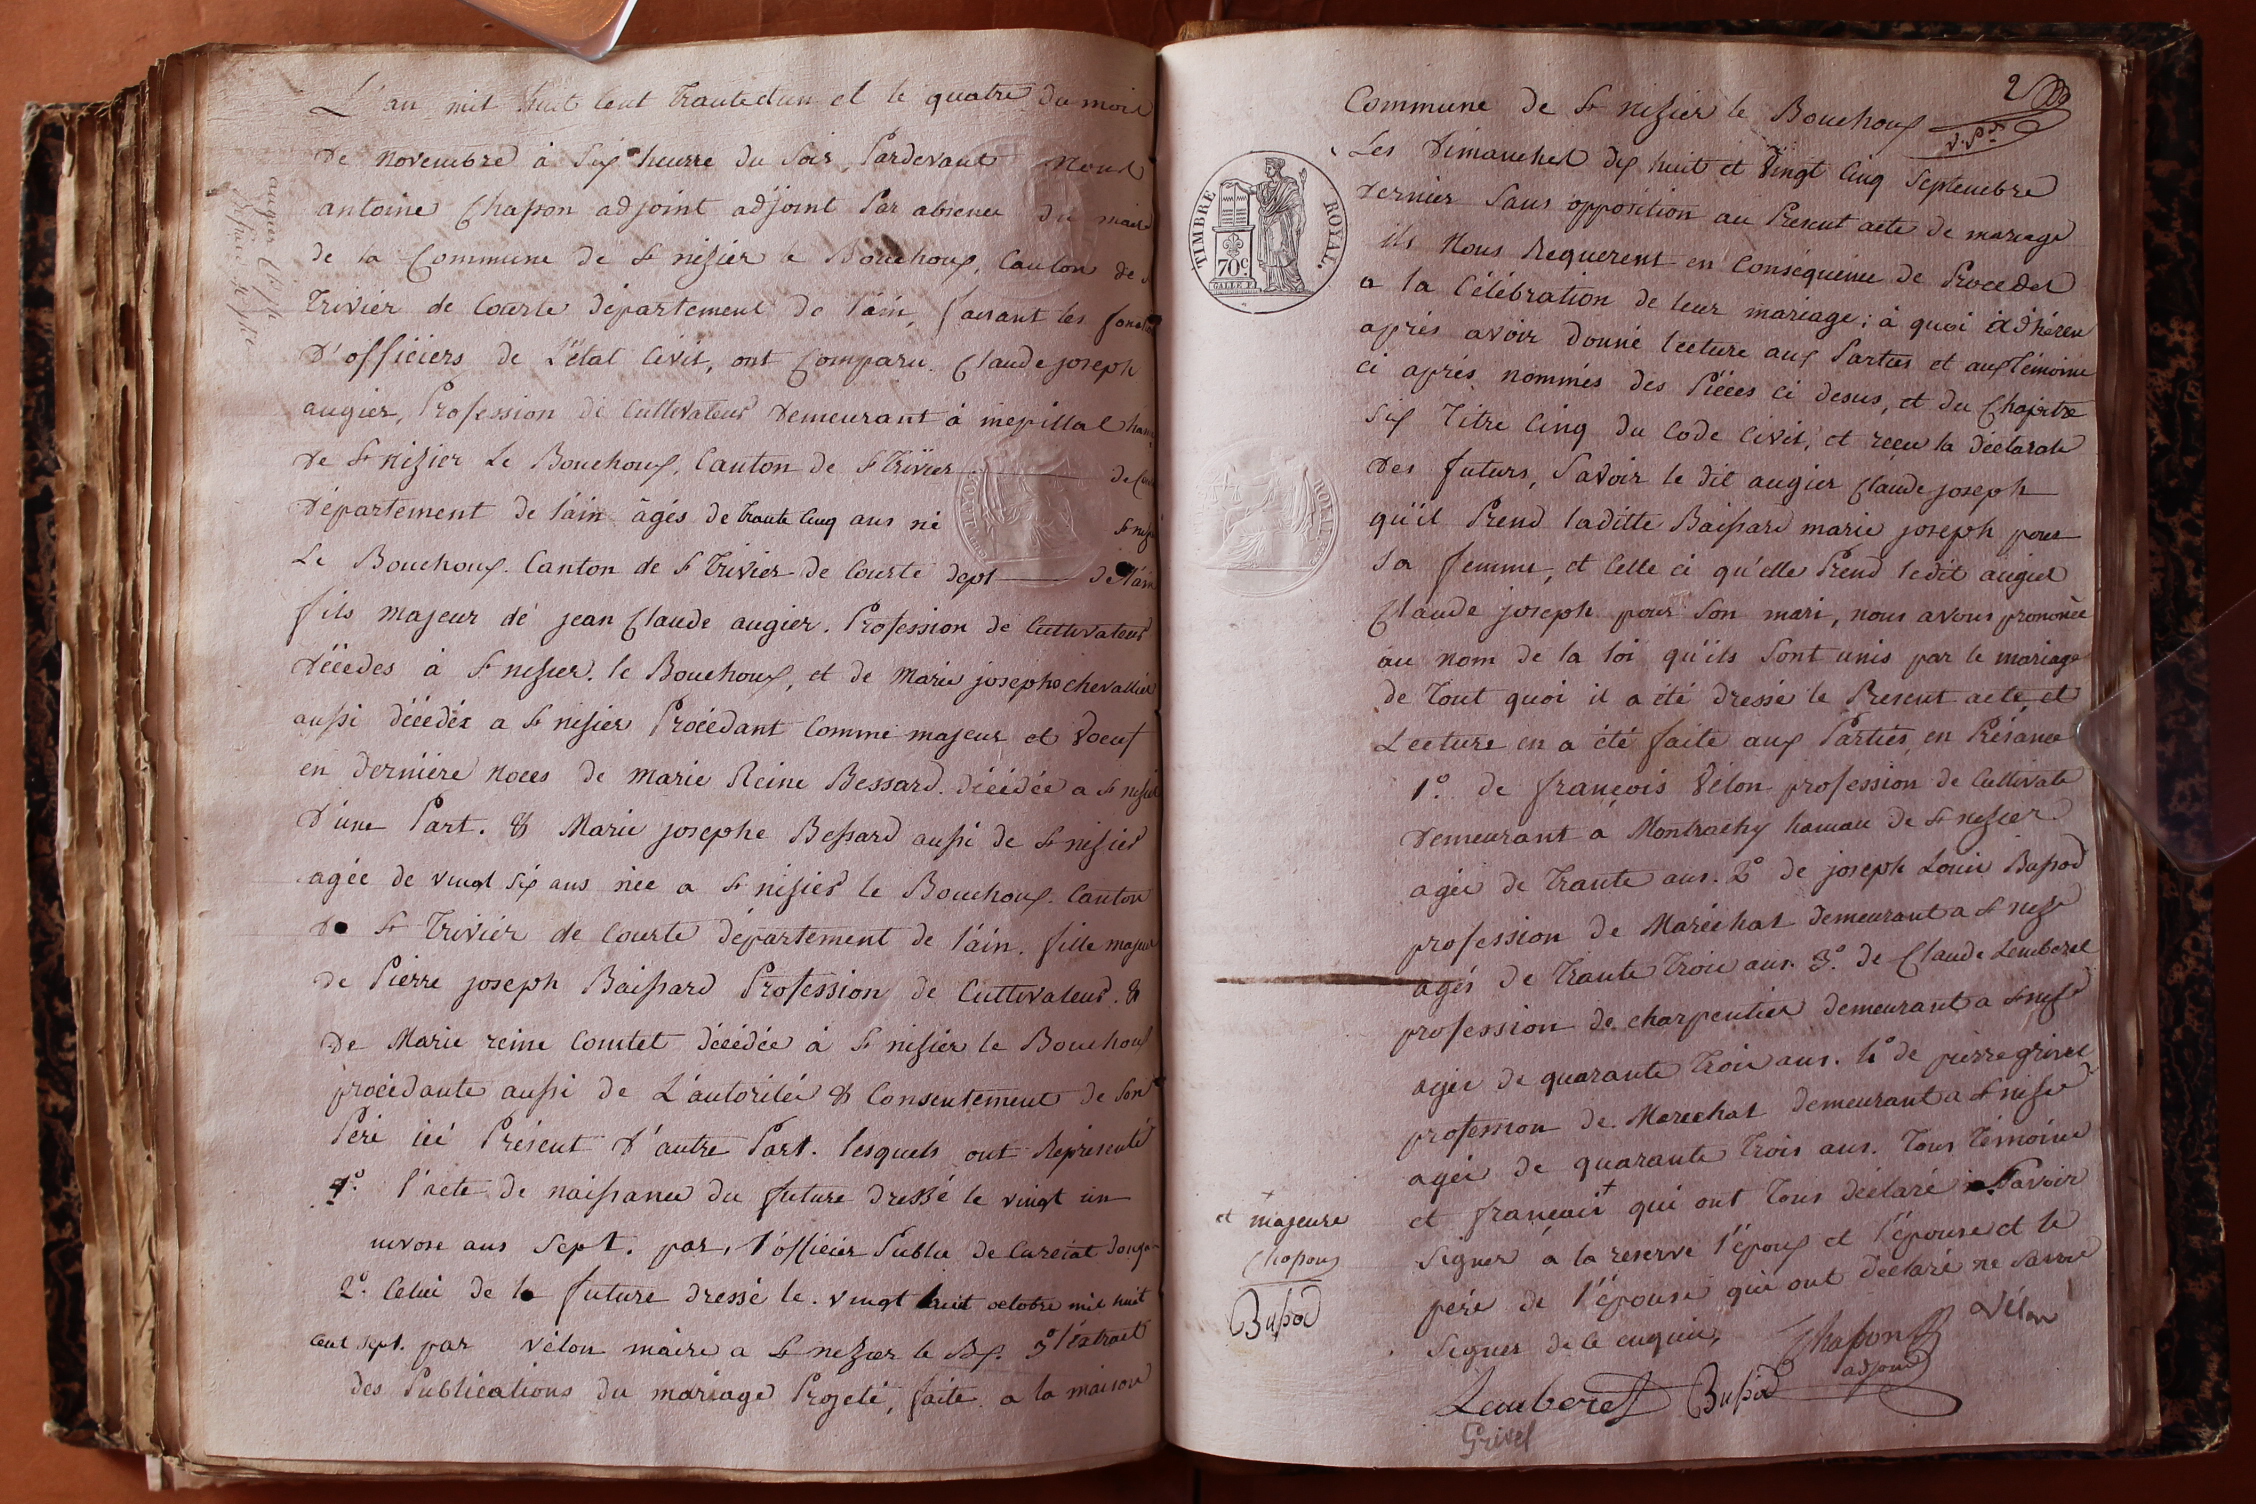 L'an mil huit Cent trantedun et le quatre du mois
de novembre à Six heurre du Soir, Pardevant Nous
antoine Chapon adjoint adjoint Par absence du maire
de la Commune de St nizier le Bouchoux, Canton de St
Trivier de Courte département de l'ain, faisant les fonct
d'officiers de L'état Civil, ont Comparu. Claude joseph
augier, Profession de Cultivateur Demeurant à mepillat ham
de St nizier Le Bouchoux, Canton de St Trivier de Cour
Département de l'ain âgés de trante Cinq ans né St nizi
Le Bouchoux. Canton de St Trivier de Courte dept de l'ain
fils majeur de jean Claude augier. Profession de Cultivateur
Décedes à St nizier. le Bouchoux, et de Marie josephe chevallier
aussi décédée a St nizier Procédant Comme majeur et Voeuf
en dernière Noces de Marie Reine Bessard. décédée a St nizier
d'une Part. & Marie josephe Bessard aussi de St nizier
agée de vingt Six ans née a St nizier le Bouchoux. Canton
de St Trivier de Courte département de l'ain. fille majeur
de Pierre joseph Baissard Profession de Cultivateur. &
De Marie reine Comtet décédée à St nizier le Bouchoux
procédante aussi de L'autoritée & Consentement de Son
Pere icé Présent d'autre Part. lesquels ont Représenté
1º. l'acte de naissance du future dressé le vingt un
nivose ans Sept. par, l'officier Public de Curciat donga
2º. Celui de la future dressé le. vingt huit octobre mil huit
Cent sept. par vélon maire a St nezier le Bx. 3º l'extrait
des Publications du mariage Projeté, faite a la maison
augier Cl. jph
Bessard
2
Commune de St nizier le Bouchoux
Les Dimanches dix huit et Vingt Cinq Septembre
dernier Sans opposition au Present acte de mariage
ils Nous Requerent en Conséquence de Proceder
a la Célébration de leur mariage; à quoi adhéren
aprés avoir donné lecture aux Parties et aux témoins
ci aprés nommés des Piéces ci desus, et du Chapitre
Six Titre Cinq du Code Civil, et reçu la déclarati
Des futurs, Savoir le dit augier Claude joseph
qu'il Prend laditte Baissard marie joseph pour
Sa femme, et Celle ci qu'elle Prend ledit augier
Claude joseph pour Son mari, nous avons prononcée
au nom de la loi qu'ils Sont unis par le mariage
de Tout quoi il a été dressé le Present acte, et
Lecture en a été faite aux Parties, en Présance
1º. de françois Vélon profession de Cultivate
Demeurant à Montrachy hamau de St nezier
agée de trante ans. 2º de joseph Louis Bassod
profession de Maréchal demeurant a St nezi
agés de trante trois ans. 3º. de Claude Lemberel
profession de charpentier demeurant a St nizi
agée de quarante trois ans. 4º de pierre grivel
profession de Marechal demeurant a St nize
agée de quarante trois ans. Tous témoins
et français + qui ont tous déclaré Savoir
Signer à la reserve l'époux et l'épouse et le
pere de l'épouse qui ont déclaré ne Savoir
Signer de ce enquis,
+
et majeure
Chapon
Bussod
Chapon
adjoint
Vélon
Lemberel
Bussod
Grivel
TIMBRE ROYAL.
70c